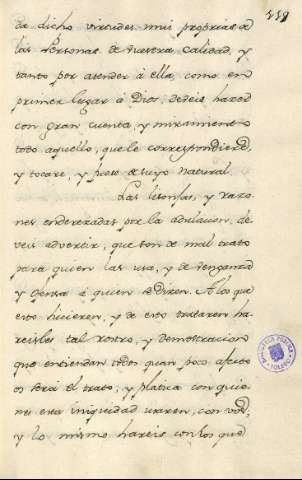 he dicho virtudes mui proprias de
las Personas de vuestra Calidad, y
tanto por atender à ella, como en
primer lugar à Dios, debeis hacer
con gran cuenta, y miramiento
todo aquello, que le correspondiere,
y tocare, y fuese de suyo natural.
Las lisonjas, y razo
nes enderezadas por la adulacion, de
veis advertir, que son de mal trato
para quien las usa, y de
y ofensa à quien se dicen. A los que
esto hicieren, y de esto trataren ha
reisles tal rostro, y demostracion
que entiendan todos quan poco afecto
os será el trato, y platica con quie
nes esta iniquidad usaren, con vos,
y lo mismo hareis con los que